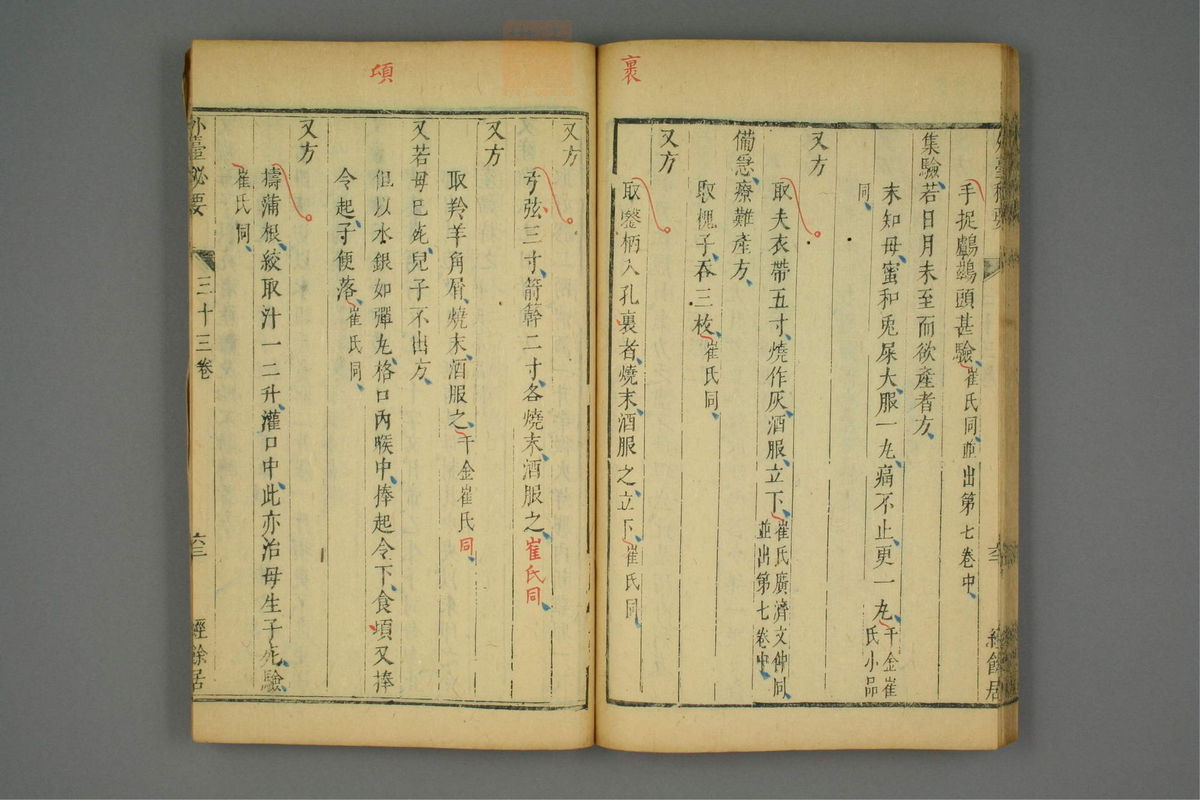 裏
手捉鸕鷀頭甚驗崔氏同並出第七卷中
集驗若日月未至而欲產者方
末知母蜜和兎屎大服一丸痛不止更一丸千金崔氏小品
同
又方
取夫衣帶五寸燒作灰酒服立下崔氏廣濟文仲同並出第七卷中
備急療難產方
取槐子吞三枚崔氏同
又方
取鑿柄入孔裏者燒末酒服之立下崔氏同
項
又方
弓弦三寸箭簳二寸各燒末酒服之崔氏同
又方
取羚羊角屑燒末酒服之千金崔氏同
又若母已死兒子不出方
但以水銀如彈丸格口內喉中捧起令下食頃又捧
令起子便落崔氏同
又方
擣蒲根絞取汁一二升灌口中此亦治母生子死驗
崔氏同
外臺秘要 三十三卷 六三 經餘居